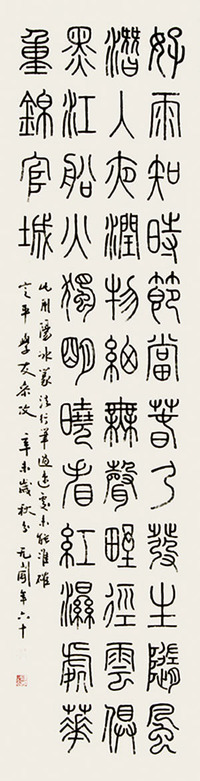 好雨知時節當萅乃發生隨風
潛入夜潤物細無聲野徑雲俱
黑江船火獨明曉看紅濕處華
重錦官城
此用陽冰篆法行筆過速處未能準確
平學友 辛未歲秋 年六十